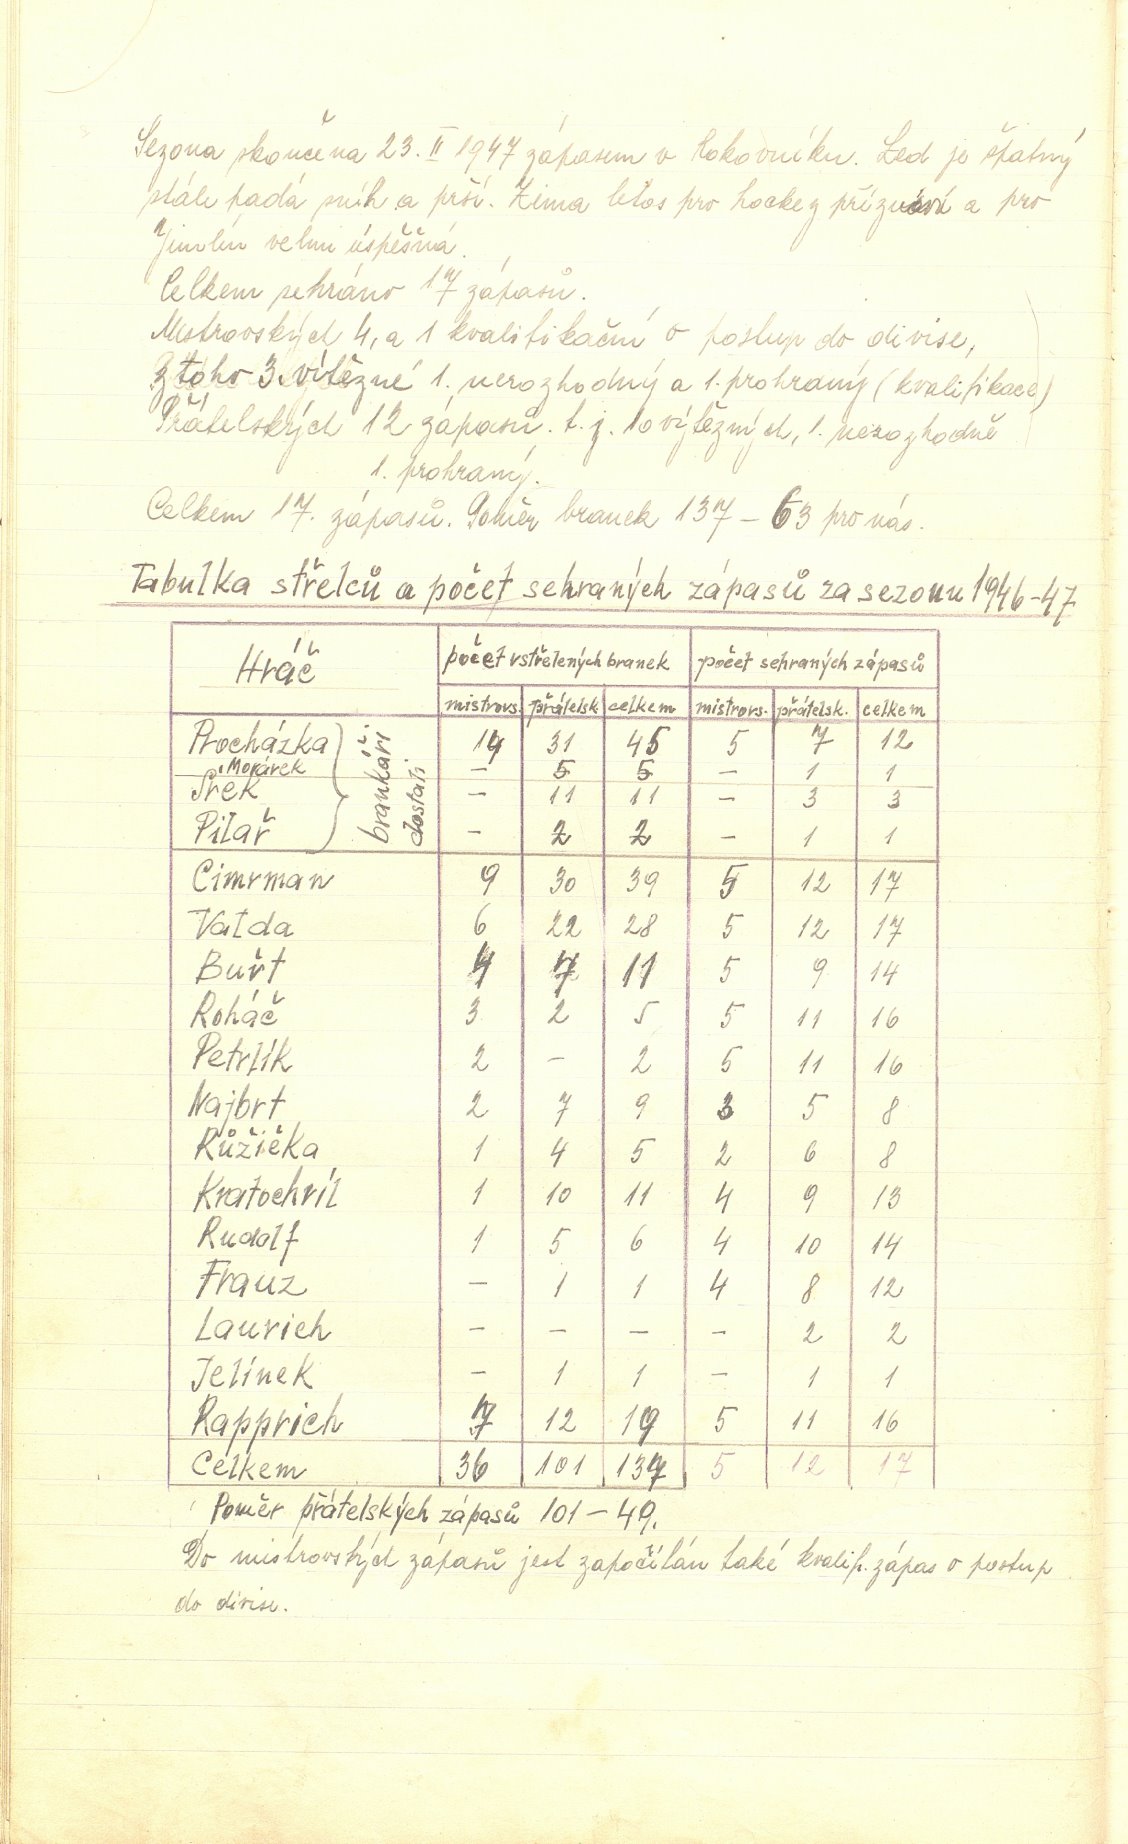 Sezona skončena 23. II 1947 zápasem v Rakovníku. Led je špatný
stále padá sníh a prší. Zima letos pro hockey příznivá a pro
Jimlín velmi úspěšná.
Celkem sehráno 17 zápasů.
Mistrovských 4, a 1 kvalifikační o postup do divise,
z toho 3. vítězné 1. nerozhodný a 1. prohraný (kvalifikace)
Přátelských 12 zápasů. t. j. 10 výtězných, 1. nerozhodně
1. prohraný.
Celkem 17. zápasů. Poměr branek 137 – 63 pro nás.
Tabulka střelců a počet sehraných zápasů za sezonu 1946–47
Hráč počet vstřelených branek počet sehraných zápasů
mistrovs. přátelsk celkem mistrovs. přátelsk. celkem
brankáři dostali
Procházka 14 31 45 5 7 12
Morárek – 5 5 – 1 1
Srek – 11 11 – 3 3
Pilař – 2 2 – 1 1
Cimrman 9 30 39 5 12 17
Valda 6 22 28 5 12 17
Buřt 4 7 11 5 9 14
Roháč 3 2 5 5 11 16
Petrlík 2 – 2 5 11 16
Najbrt 2 7 9 3 5 8
Růžička 1 4 5 2 6 8
Kratochvíl 1 10 11 4 9 13
Rudolf 1 5 6 4 10 14
Franz – 1 1 4 8 12
Laurich – – – – 2 2
Jelínek – 1 1 – 1 1
Rapprich 7 12 19 5 11 16
Celkem 36 101 137 5 12 17
Poměr přátelských zápasů 101 – 49.
Do mistrovských zápasů jest započítán také kvalif. zápas o postup
do divise.